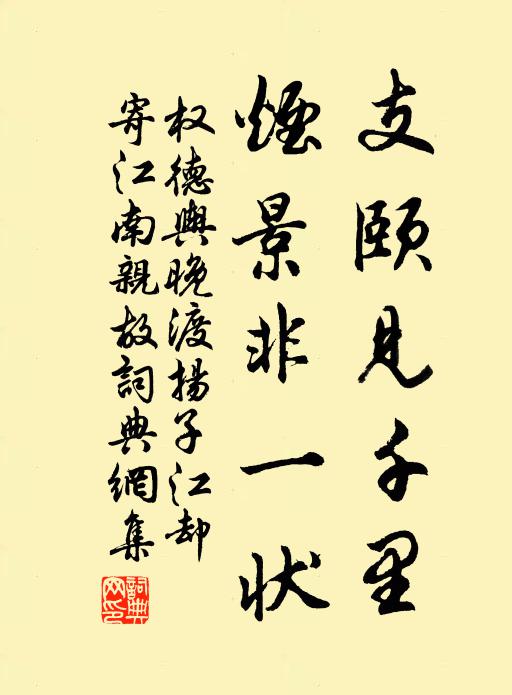 支頤見千里
煙景非一狀
权德輿晚渡揚子江却
寄江南親故詞典網集
詞典
网印